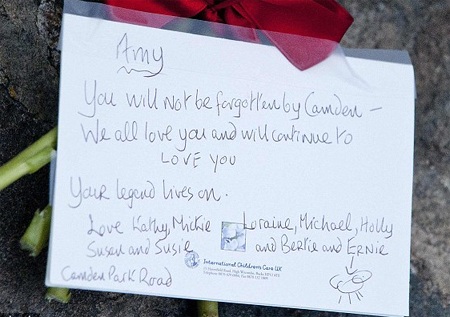 Amy
You will not be forgotten by Camden –
We all love you and will continue to
LOVE YOU
Your legend lives on.
Love Kathy, Mickie Loraine, Michael, Holly
Susan and Susie and Bertie and ERNIE
International Children's Care UK
Camden Park Road